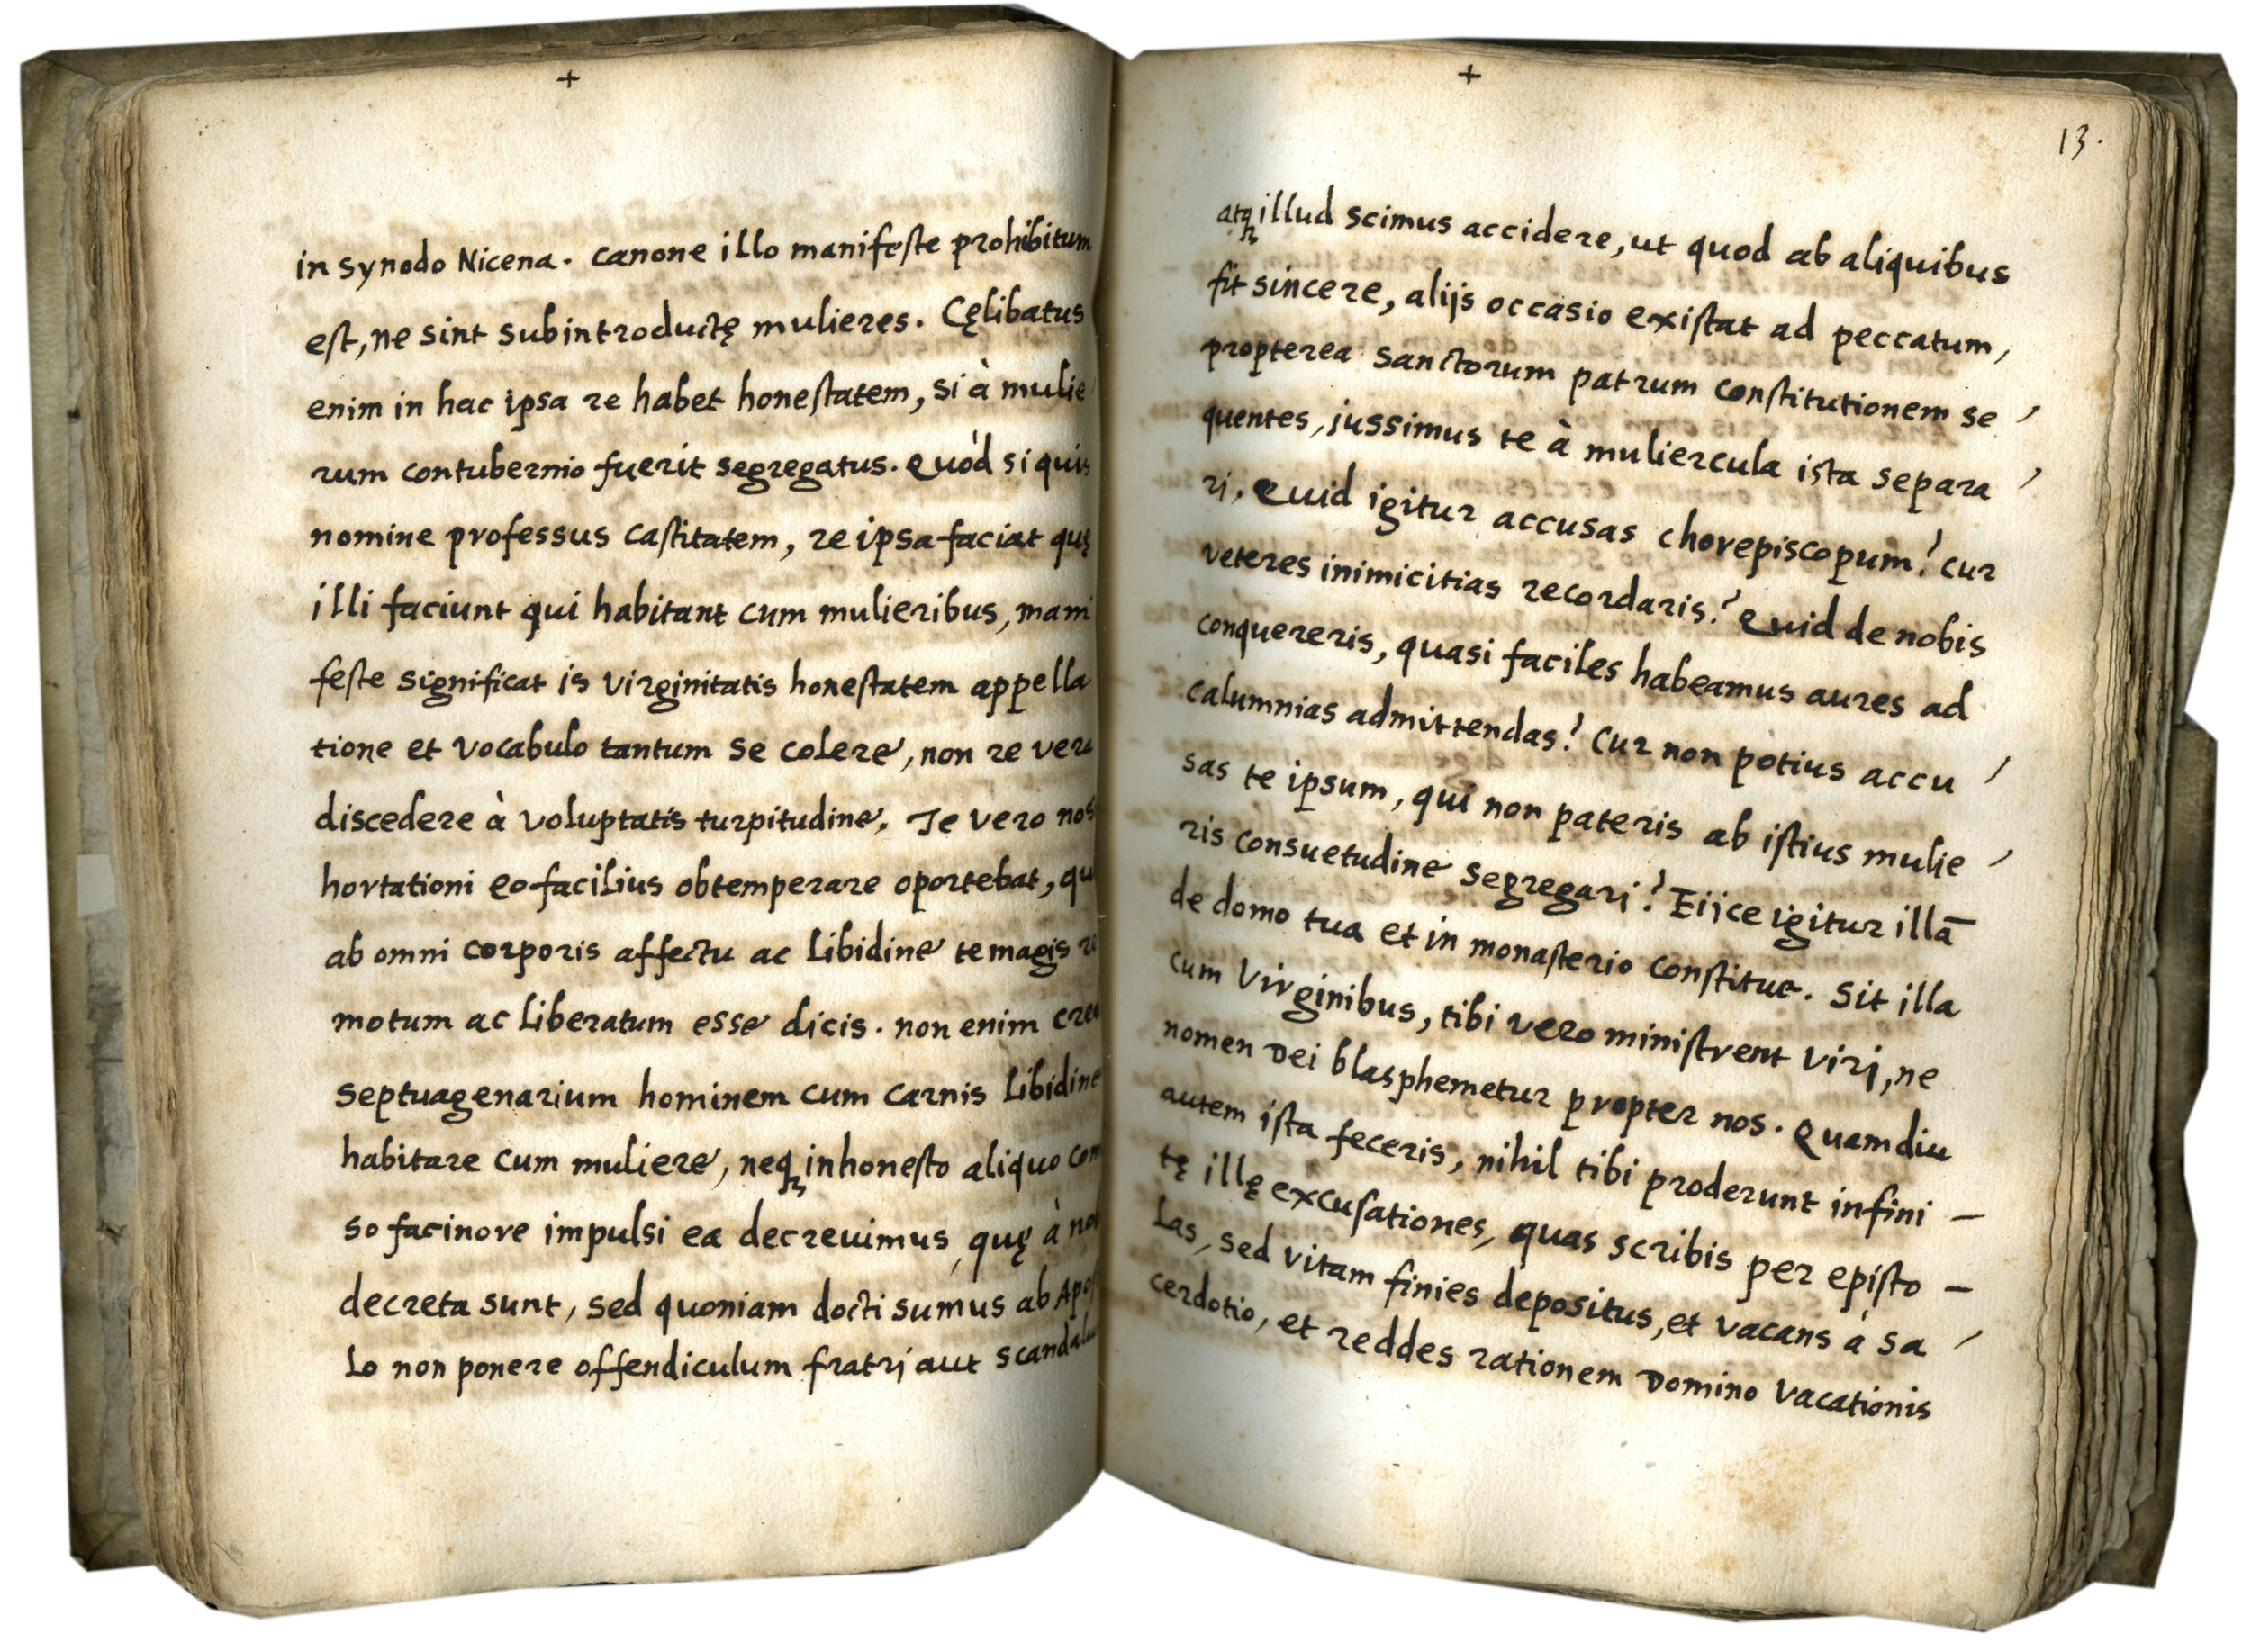 +
in synodo Nicena. canone illo manifeste prohibitum
est, ne sint subintroductę mulieres. Cęlibatus
enim in hac ipsa re habet honestatem, si à mulie
rum contubernio fuerit segregatus. Quòd si quis
nomine professus castitatem, re ipsa faciat quę
illi faciunt qui habitant cum mulieribus, mani
feste significat is virginitatis honestatem appella
tione et vocabulo tantum se colere, non re vera
discedere à voluptatis turpitudine. Te vero nos
hortationi eo facilius obtemperare oportebat, qu
ab omni corporis affectu ac libidine te magis re
motum ac liberatum esse dicis. non enim cre
septuagenarium hominem cum carnis libidine
habitare cum muliere, neqꝫ inhonesto aliquo com
so facinore impulsi ea decreuimus, quę à no
decreta sunt, sed quoniam docti sumus ab Apos
lo non ponere offendiculum fratri aut scandalu
+
13.
atqꝫ illud scimus accidere, ut quod ab aliquibus
fit sincere, alijs occasio existat ad peccatum,
propterea sanctorum patrum constitutionem se
quentes, jussimus te à muliercula ista separa
ri. Quid igitur accusas chorepiscopum? cur
veteres inimicitias recordaris? Quid de nobis
conquereris, quasi faciles habeamus aures ad
calumnias admittendas? cur non potius accu
sas te ipsum, qui non pateris ab istius mulie
ris consuetudine segregari? Eijce igitur illā
de domo tua et in monasterio constitue. Sit illa
cum virginibus, tibi vero ministrent viri, ne
nomen Dei blasphemetur propter nos. Quamdiu
autem ista feceris, nihil tibi proderunt infini —
tę illę excusationes, quas scribis per episto —
las, sed vitam finies depositus, et vacans à sa
cerdotio, et reddes rationem Domino vacationis